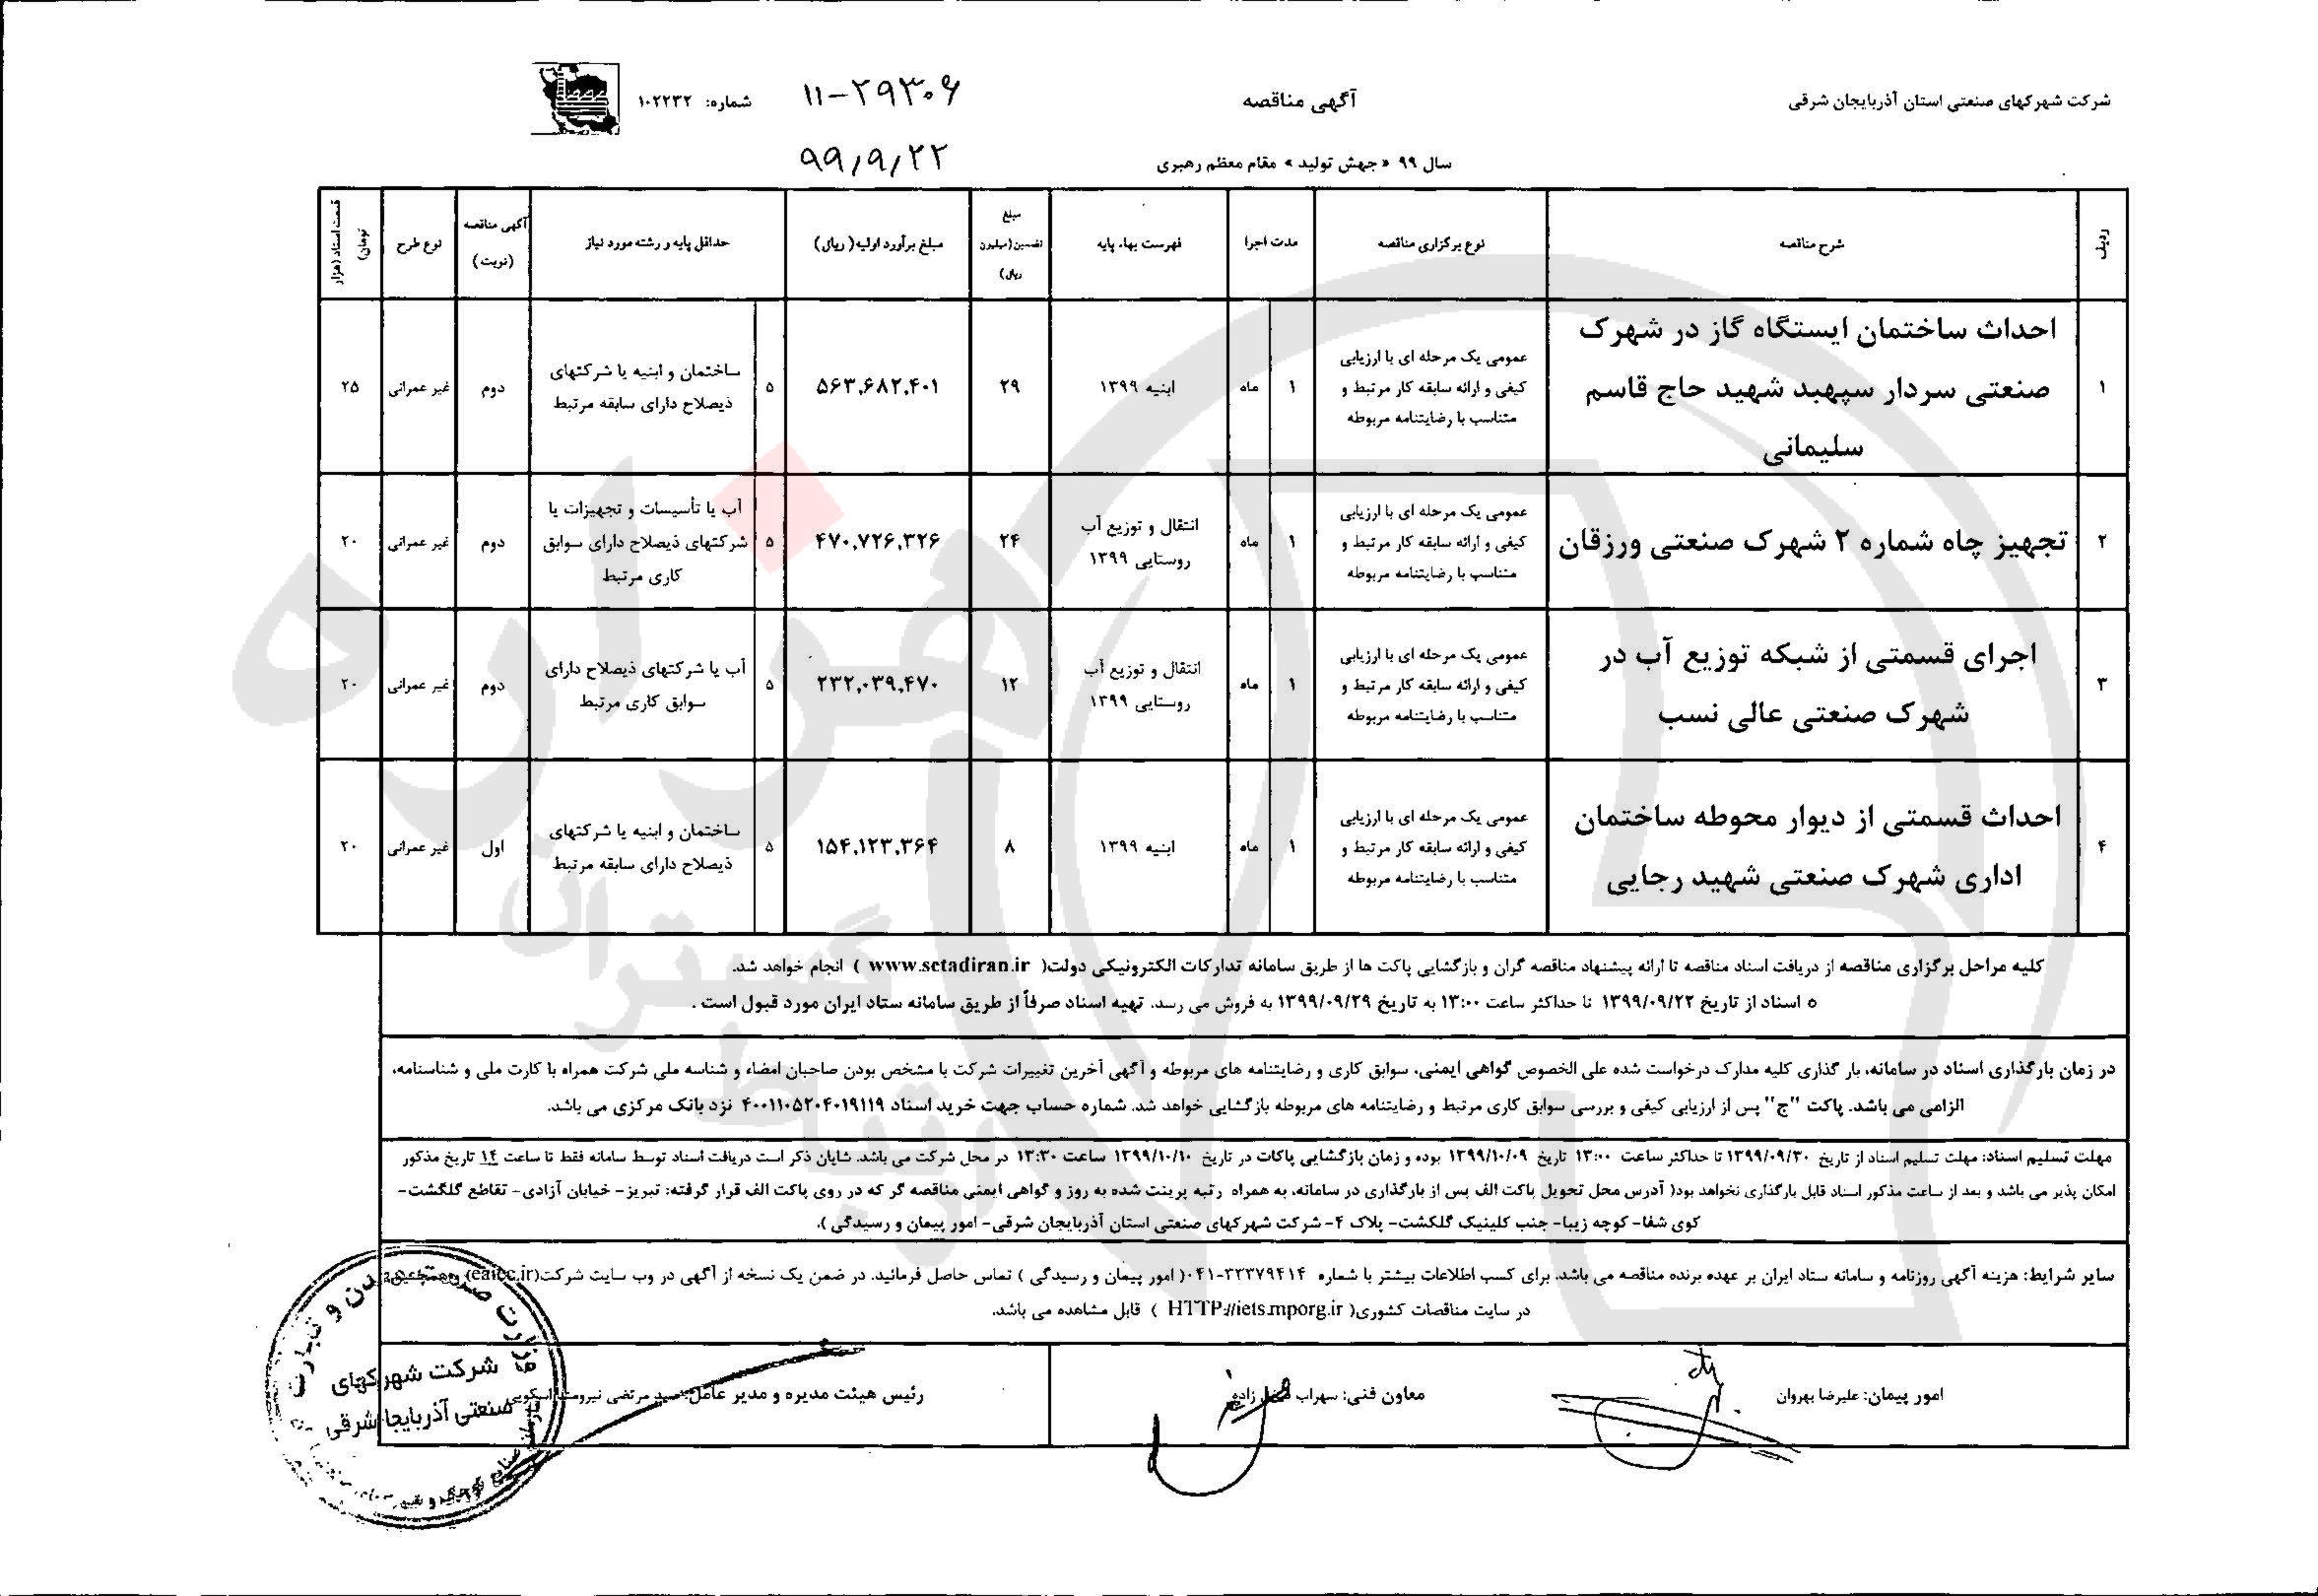 شرکت شهرکهای صنعتی استان آذربایجان شرقی
آگهی مناقصه
۱۱-۲۹۳۰۶
شماره: ۱۰۲۲۳۲
۹۹/۹/۲۲
سال ۹۹ « جهش تولید » مقام معظم رهبری
ردیف
شرح مناقصه
نوع برگزاری مناقصه
مدت اجرا
فهرست بهاء پایه
مبلغ
تضمین(میلیون
ریال)
مبلغ برآورد اولیه( ریال)
حداقل پایه و رشته مورد نیاز
آگهی مناقصه
(نوبت)
نوع طرح
قیمت اسناد (هزار
تومان)
۱
احداث ساختمان ایستگاه گاز در شهرک
صنعتی سردار سپهبد شهید حاج قاسم
سلیمانی
عمومی یک مرحله ای با ارزیابی
کیفی و ارائه سابقه کار مرتبط و
متناسب با رضایتنامه مربوطه
۱
ماه
ابنیه ۱۳۹۹
۲۹
۵۶۳,۶۸۲,۴۰۱
۵
ساختمان و ابنیه یا شرکتهای
ذیصلاح دارای سابقه مرتبط
دوم
غیر عمرانی
۲۵
۲
تجهیز چاه شماره ۲ شهرک صنعتی ورزقان
عمومی یک مرحله ای با ارزیابی
کیفی و ارائه سابقه کار مرتبط و
متناسب با رضایتنامه مربوطه
۱
ماه
انتقال و توزیع آب
روستایی ۱۳۹۹
۲۴
۴۷۰,۷۲۶,۳۲۶
۵
آب یا تأسیسات و تجهیزات یا
شرکتهای ذیصلاح دارای سوابق
کاری مرتبط
دوم
غیر عمرانی
۲۰
۳
اجرای قسمتی از شبکه توزیع آب در
شهرک صنعتی عالی نسب
عمومی یک مرحله ای با ارزیابی
کیفی و ارائه سابقه کار مرتبط و
متناسب با رضایتنامه مربوطه
۱
ماه
انتقال و توزیع آب
روستایی ۱۳۹۹
۱۲
۲۳۲,۰۳۹,۴۷۰
۵
آب یا شرکتهای ذیصلاح دارای
سوابق کاری مرتبط
دوم
غیر عمرانی
۲۰
۴
احداث قسمتی از دیوار محوطه ساختمان
اداری شهرک صنعتی شهید رجایی
عمومی یک مرحله ای با ارزیابی
کیفی و ارائه سابقه کار مرتبط و
متناسب با رضایتنامه مربوطه
۱
ماه
ابنیه ۱۳۹۹
۸
۱۵۴,۱۲۳,۳۶۴
۵
ساختمان و ابنیه یا شرکتهای
ذیصلاح دارای سابقه مرتبط
اول
غیر عمرانی
۲۰
کلیه مراحل برگزاری مناقصه از دریافت اسناد مناقصه تا ارائه پیشنهاد مناقصه گران و بازگشایی پاکت ها از طریق سامانه تدارکات الکترونیکی دولت( www.setadiran.ir ) انجام خواهد شد.
o اسناد از تاریخ ۱۳۹۹/۰۹/۲۲ تا حداکثر ساعت ۱۳:۰۰ به تاریخ ۱۳۹۹/۰۹/۲۹ به فروش می رسد. تهیه اسناد صرفاً از طریق سامانه ستاد ایران مورد قبول است .
در زمان بارگذاری اسناد در سامانه، بار گذاری کلیه مدارک درخواست شده علی الخصوص گواهی ایمنی، سوابق کاری و رضایتنامه های مربوطه و آگهی آخرین تغییرات شرکت با مشخص بودن صاحبان امضاء و شناسه ملی شرکت همراه با کارت ملی و شناسنامه،
الزامی می باشد. پاکت "ج" پس از ارزیابی کیفی و بررسی سوابق کاری مرتبط و رضایتنامه های مربوطه بازگشایی خواهد شد. شماره حساب جهت خرید اسناد ۴۰۰۱۱۰۵۲۰۴۰۱۹۱۱۹ نزد بانک مرکزی می باشد.
مهلت تسلیم اسناد: مهلت تسلیم اسناد از تاریخ ۱۳۹۹/۰۹/۳۰ تا حداکثر ساعت ۱۳:۰۰ تاریخ ۱۳۹۹/۱۰/۰۹ بوده و زمان بازگشایی پاکات در تاریخ ۱۳۹۹/۱۰/۱۰ ساعت ۱۳:۳۰ در محل شرکت می باشد. شایان ذکر است دریافت اسناد توسط سامانه فقط تا ساعت ۱۴ تاریخ مذکور
امکان پذیر می باشد و بعد از ساعت مذکور اسناد قابل بارگذاری نخواهد بود( آدرس محل تحویل پاکت الف پس از بارگذاری در سامانه، به همراه رتبه پرینت شده به روز و گواهی ایمنی مناقصه گر که در روی پاکت الف قرار گرفته: تبریز- خیابان آزادی- تقاطع گلگشت-
کوی شفا- کوچه زیبا- جنب کلینیک گلگشت- پلاک ۴- شرکت شهرکهای صنعتی استان آذربایجان شرقی- امور پیمان و رسیدگی ).
سایر شرایط: هزینه آگهی روزنامه و سامانه ستاد ایران بر عهده برنده مناقصه می باشد. برای کسب اطلاعات بیشتر با شماره ۰۴۱-۳۳۳۷۹۴۱۴( امور پیمان و رسیدگی ) تماس حاصل فرمائید. در ضمن یک نسخه از آگهی در وب سایت شرکت(eaiec.ir)
در سایت مناقصات کشوری( HTTP://iets.mporg.ir ) قابل مشاهده می باشد.
امور پیمان: علیرضا بهروان
معاون فنی: سهراب
رئیس هیئت مدیره و مدیر عامل: سید مرتضی نیرومند اسکویی
شرکت شهرکهای
صنعتی آذربایجان شرقی
هزاره